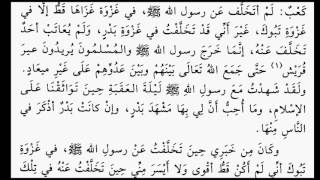 كَعْبٌ: لَمْ أَتَخَلَّفْ عَن رسولِ اللهِ ﷺ، في غَزْوَةٍ غَزَاهَا قَطُّ إلَّا في
غَزْوَةِ تَبُوكَ، غَيرَ أنِّي قَدْ تَخَلَّفْتُ في غَزْوَةِ بَدْرٍ، وَلَمْ يُعَاتِبْ أحَدًا
تَخَلَّفَ عَنْهُ، إنَّمَا خَرَجَ رسولُ اللهِ ﷺ والمُسلمُونَ يُريدُونَ عيرَ
قُرَيْشٍ (١) حَتَّى جَمَعَ اللهُ تَعَالَى بَيْنَهُم وبَيْنَ عَدُوِّهِمْ عَلَى غَيرِ ميعَادٍ.
وَلَقَدْ شَهِدتُ مَعَ رسولِ اللهِ ﷺ لَيْلَةَ العَقَبَةِ حِينَ تَوَاثَقْنَا عَلَى
الإسْلامِ، ومَا أُحِبُّ أنَّ لِي بِهَا مَشْهَدَ بَدْرٍ، وإن كَانَتْ بَدْرٌ أذْكَرَ في
النَّاسِ مِنْهَا.
وكَانَ مِن خَبَرِي حِينَ تَخَلَّفْتُ عن رسولِ اللهِ ﷺ، في غَزْوَةِ
تَبُوكَ أنِّي لم أَكُنْ قَطُّ أَقْوَى ولا أَيْسَرَ مِنِّي حِينَ تَخَلَّفْتُ عَنْهُ في تِلْكَ